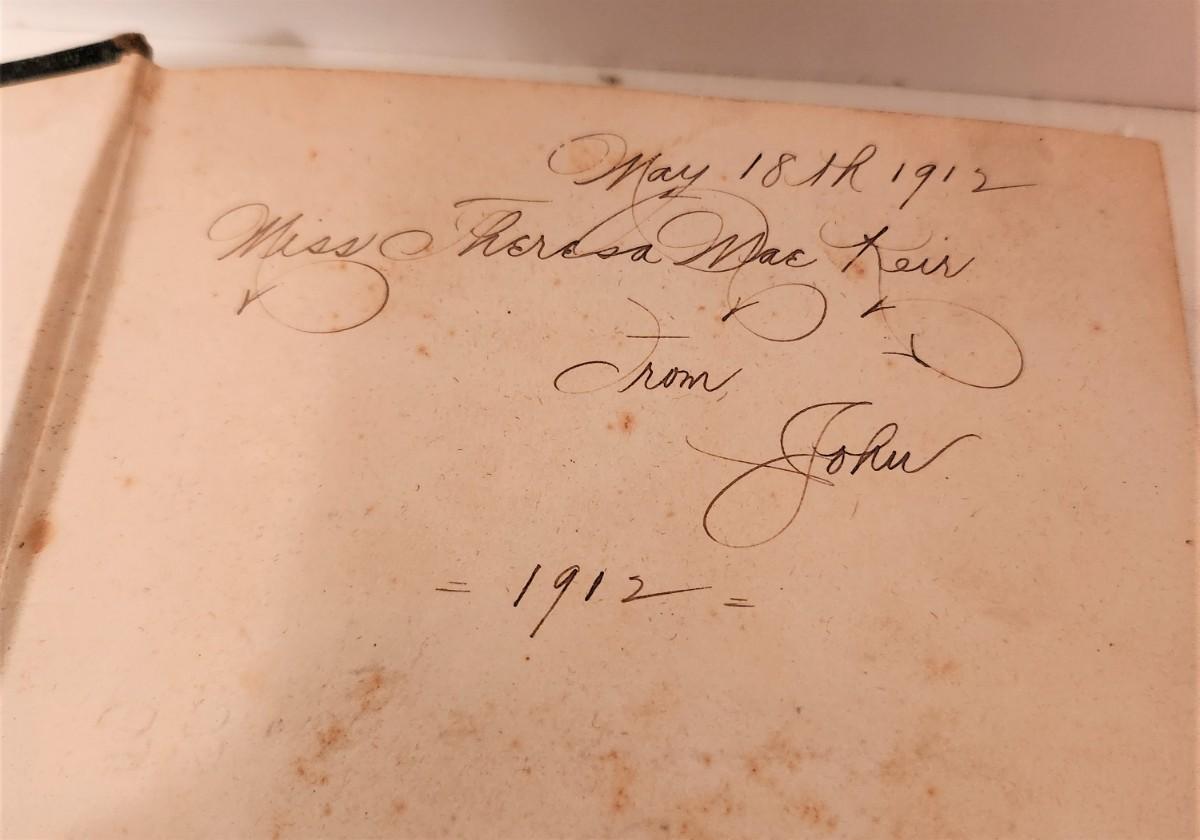 May 18th 1912
Miss Theresa Mae Keir
From
John
= 1912 =